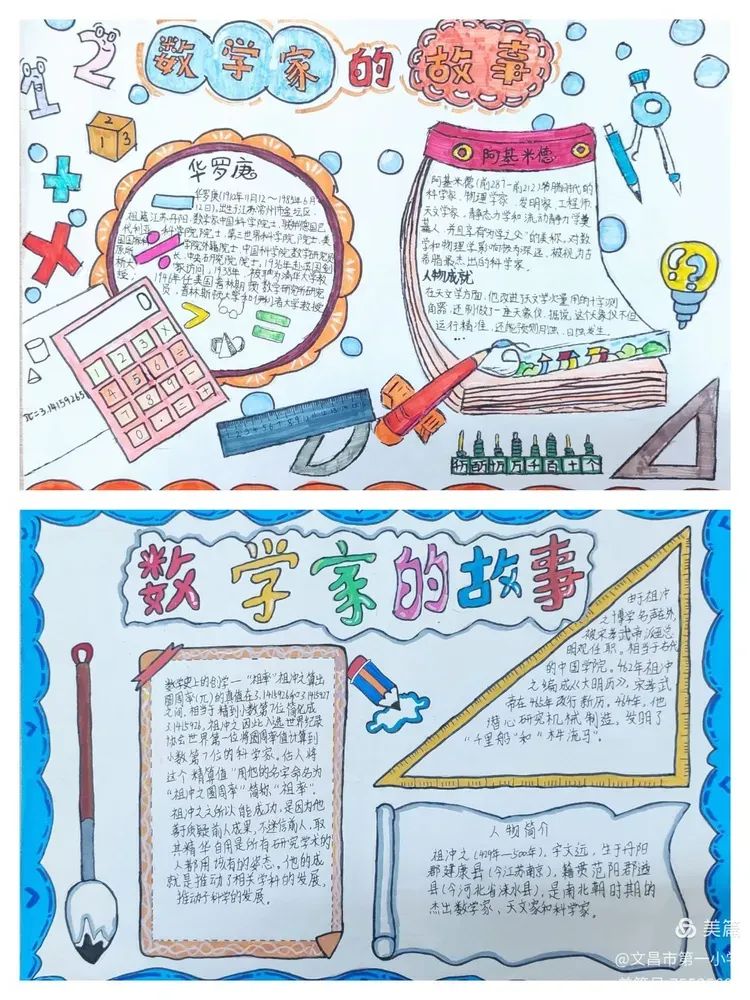 1 2
数学家的故事
2
1 3
华罗庚
华罗庚(1910年11月12～1985年6月
12日),出生于江苏常州市金坛区,
祖籍江苏丹阳,数学家,中国科学院院士,
长,中央研究院院士
1946年任美国普林斯顿数学研究所研究
员,普林斯顿大学和伊利诺大学教授
0
1 2 3
4 5 6
7 8 9
0
π=3.14159265
阿基米德
阿基米德(前287—前212),希腊时代的
科学家、物理学家、发明家、工程师、
天文学家、静态力学和流动静力学奠
基人,并且享有“力学之父”的美称,对数
学和物理学影响极为深远,被视为古
希腊最杰出的科学家。
人物成就
在天文学方面,他改进天文学测量用的十字测
角器,还制做了一座天象仪,据说,这个天象仪不但
运行精准,还能预测月蚀、日蚀发生。
...
亿 千万 百万 十万 万 千 百 十 个
数学家的故事
数学史上的创学—“祖率”祖冲之算出
圆周率(兀)的真值在3.1415926和3.1415927
之间,相当于精到小数第7位,简化成
3.1415926,祖冲之因此入选世界纪录
协会世界第一位将圆周率值计算到
小数第7位的科学家。后人将
这个“精算值”用他的名字命名为
“祖冲之圆周率”简称“祖率”。
祖冲之之所以能成功,是因为他
善于质疑前人成果,不迷信前人,取
其精华自用是所有研究学术的
人都用该有的姿态。他的成
就是推动了相关学科的发展,
推动于科学的发展。
由于祖冲
之博学名声在外,
被宋孝武帝派至总
明观任职。相当于古代
的中国学院。462年祖冲
之编成《大明历》,宋孝武
帝在465年改行新历。464年,他
潜心研究机械制造,发明了
“千里船”和“木牛流马”。
人物简介
祖冲之(429年—500年),字文远,生于丹阳
郡建康县(今江苏南京),籍贯范阳郡遒
县(今河北省涞水县),是南北朝时期的
杰出数学家、天文家和科学家。
美篇
@文昌市第一小学